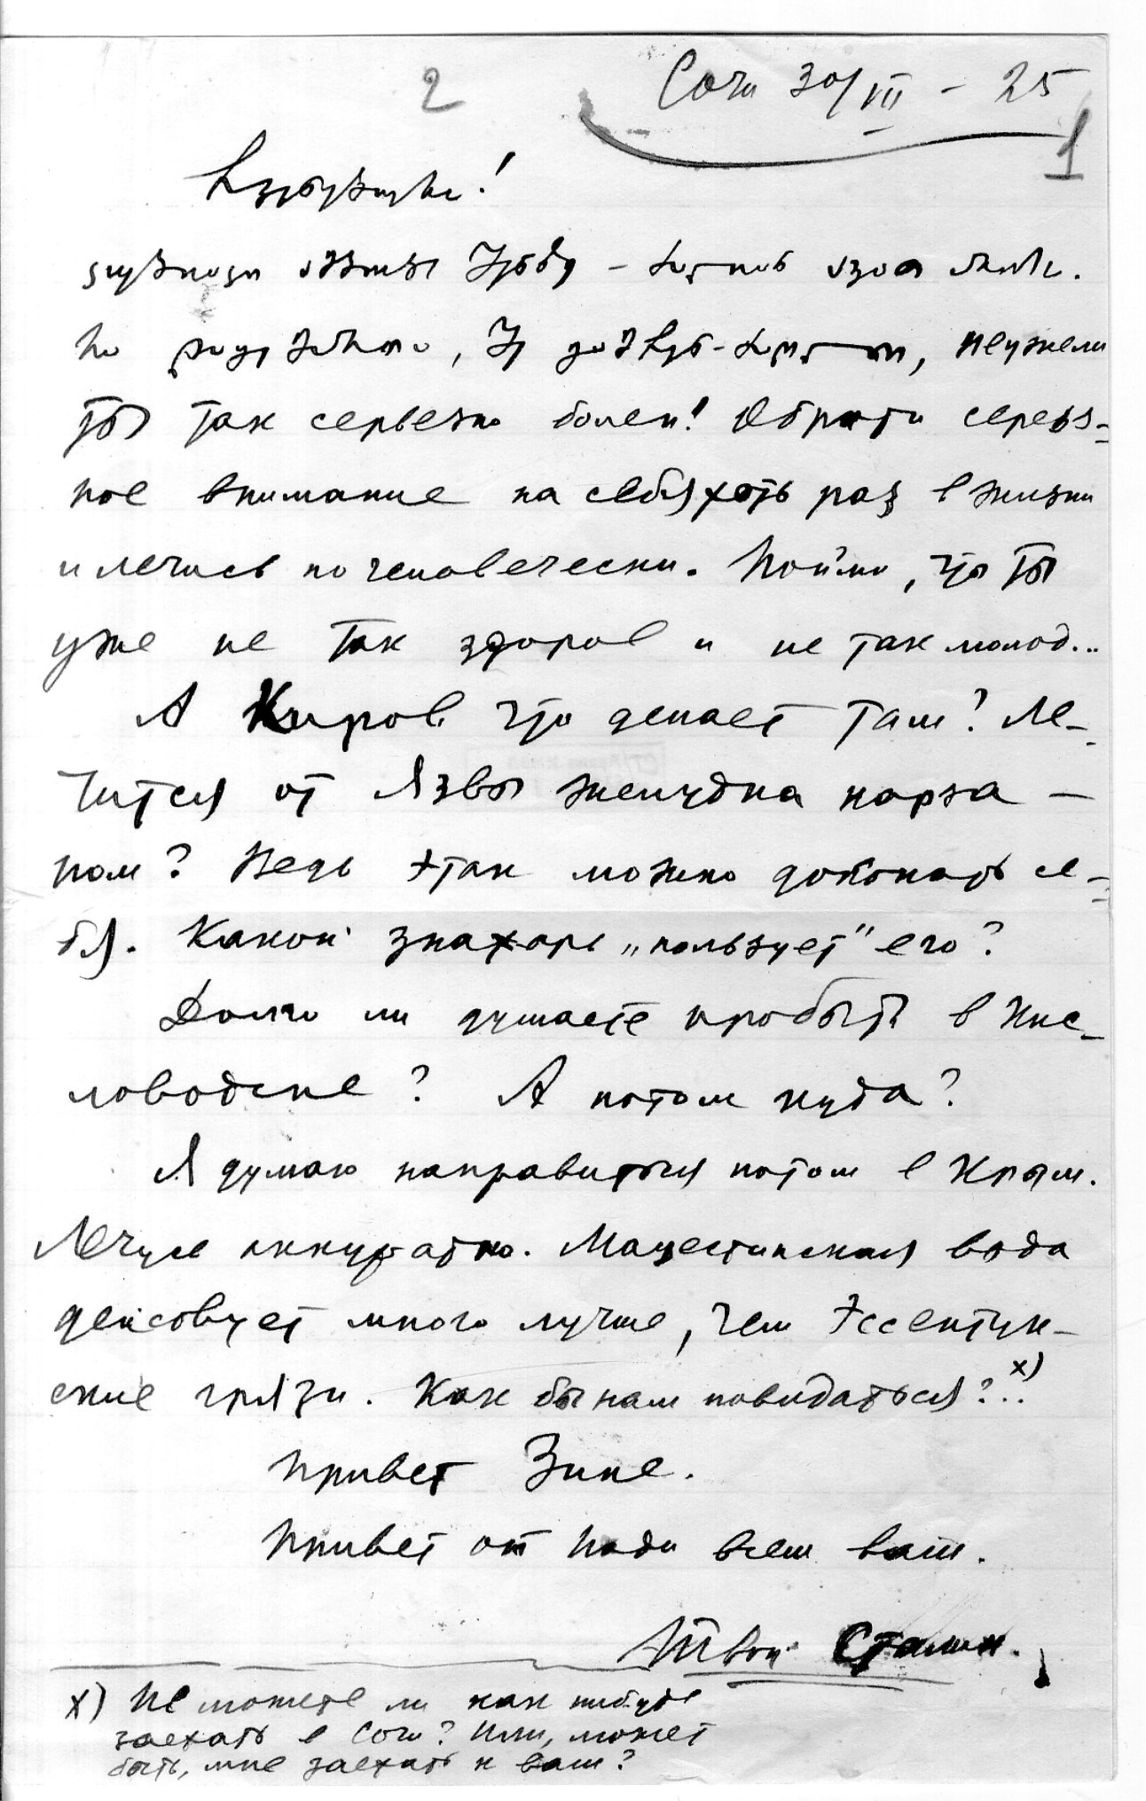 2
Сочи 30/VII – 25
1
неужели
ты так сервезно болен! Обрати серьз-
ное внимание на себя хоть раз в жизни
и лечись по человечески. Пойми, что ты
уже не так здоров и не так молод...
А Киров что делает там? Ле-
чится от язвы желудка нарза-
ном? Ведь этак можно доконать се-
бя. Какой знахарь „пользует“ его?
Долго ли думаете пробыть в Кис-
ловодске? А потом куда?
Я думаю направиться потом в Крым.
Лечусь аккуратно. Мацестинская вода
действует много лучше, чем Эссентук-
ские грязи. Как бы нам повидаться?.. х)
Привет Зине.
Привет от Нади всем вам.
Твой Сталин.
х) Не можете ли как нибудь
заехать в Сочи? Или, может
быть, мне заехать к вам?